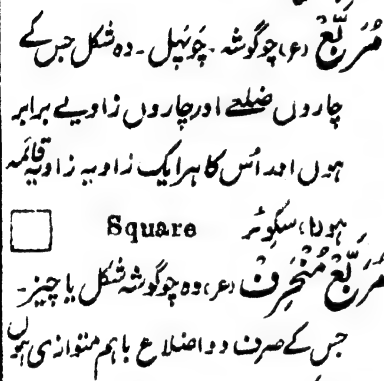 مُرَبَّع (ع) چوگوشہ۔ چَوپہل۔ وہ شکل جس کے
چاروں ضلعے اور چاروں زاویے برابر
ہوں اور اُس کا ہر ایک زاویہ زاویہ قائمہ
ہوتا، سکوئر Square
مُرَبَّع مُنْحَرِف (ع) وہ چوگوشہ شکل یا چیز۔
جس کے صرف دو اضلاع باہم متوازی ہوں